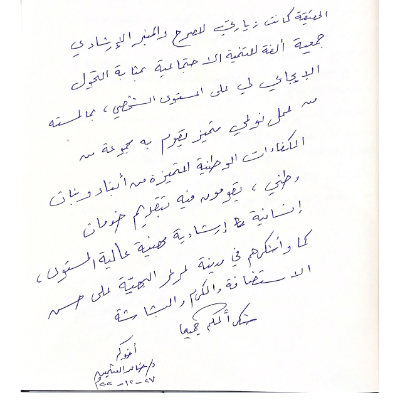 الحقيقة كانت زيارتي للصرح والمنبر الإرشادي
جمعية ألفة للتنمية الاجتماعية بمثابة التحول
الإيجابي لي على المستوى الشخصي، بما لمسته
من عمل نوعي متميز يقوم به مجموعة من
الكفاءات الوطنية المتميزة من أبناء وبنات
وطني، يقومون فيه بتقديم خدمات
إنسانية إرشادية مهنية عالية المستوى،
كما وأشكرهم في مدينة عرعر البهيّة على حسن
الاستضافة والكرم والبشاشة
شكراً لكم جميعا
أخوكم
د. خالد